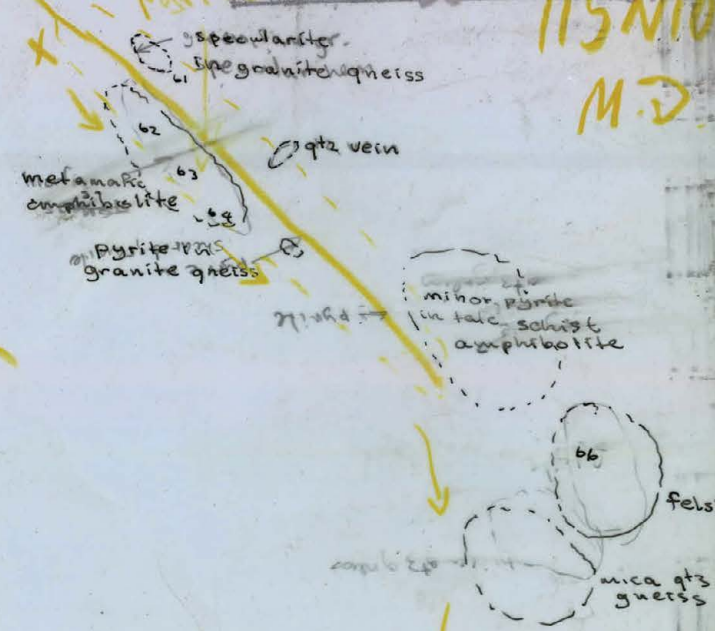 115N10
M.D.
specularite
in granite gneiss
61
62
qtz vein
63
metamafic
amphibolite
64
pyrite in
granite gneiss
minor pyrite
in talc schist
amphibolite
66
fels
mica qtz
gneiss